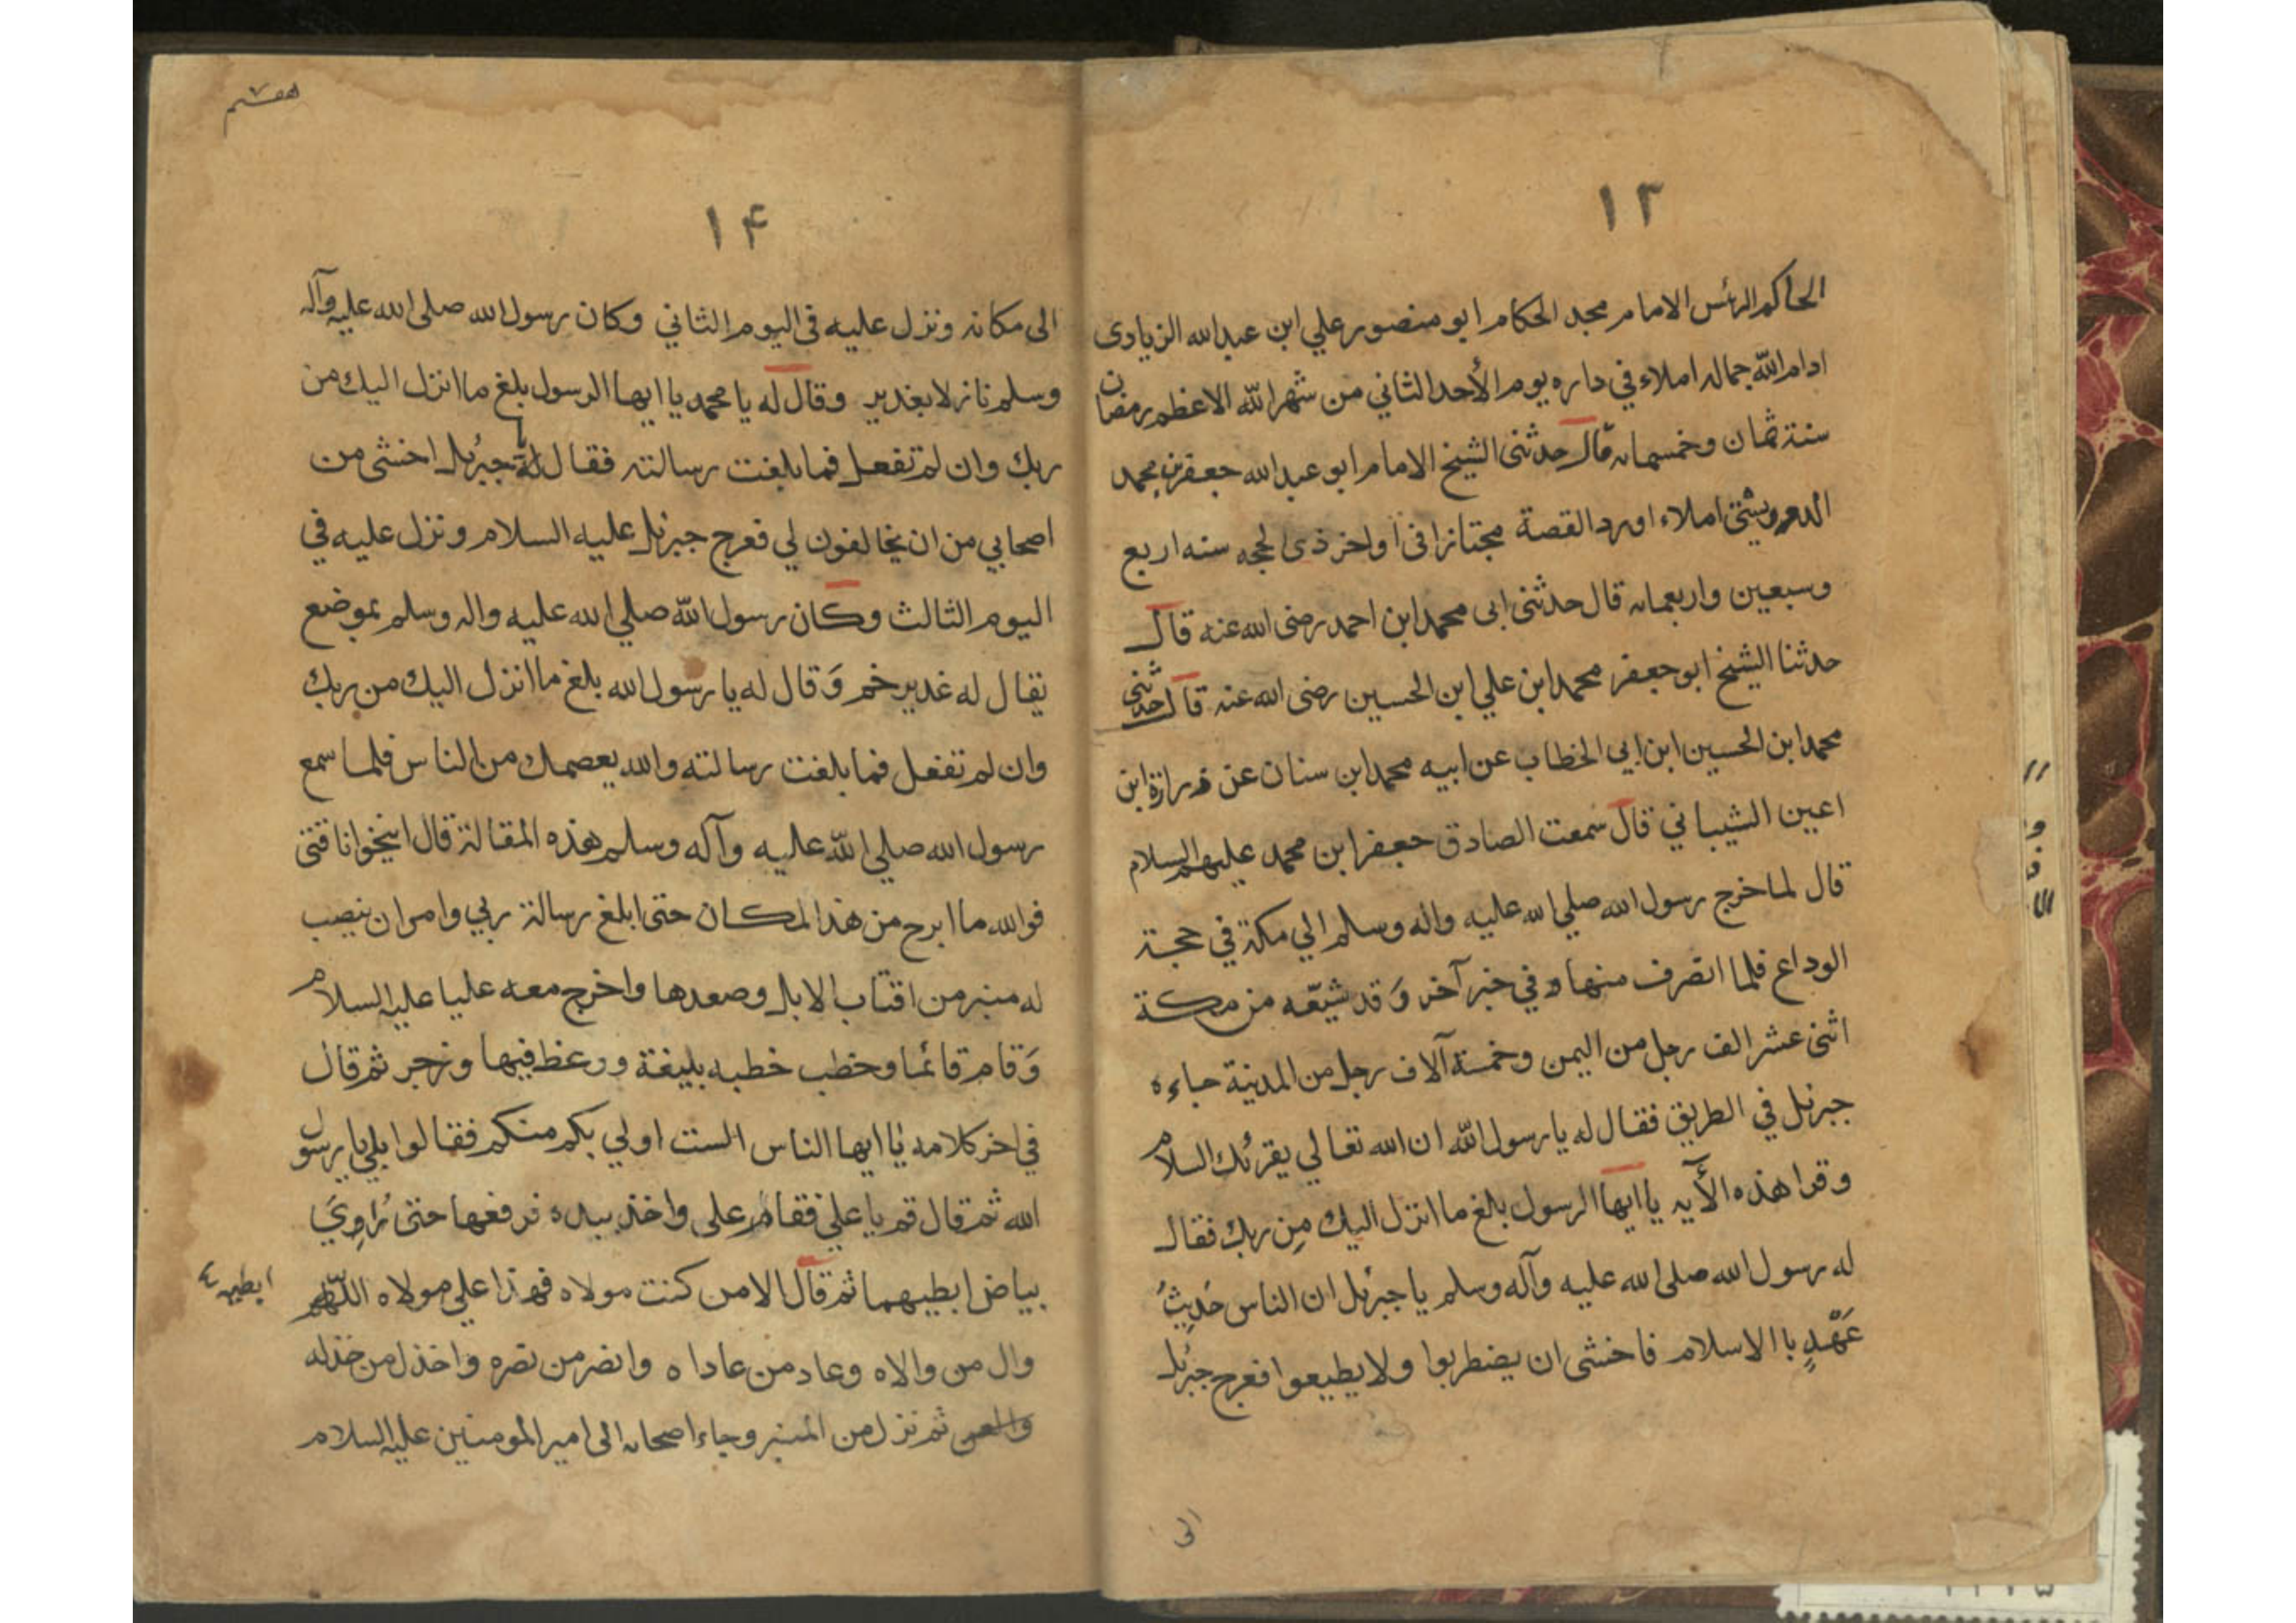 ١٣
الحاكم الرئس الامام مجد الحكام ابو منصور علي ابن عبدالله الزيادى
ادام اللّه جماله املاء في داره يوم الأحد الثاني من شهر اللّه الاعظم رمضان
سنة ثمان وخمسماىه قال حدثنى الشيخ الامام ابو عبدالله جعفر بن محمد
املاء اورد القصة مجتازا فى اواخر ذى الحجه سنه اربع
وسبعين واربعماىه قال حدثنى ابى محمد ابن احمد رضى الله عنه قال
حدثنا الشيخ ابو جعفر محمد ابن علي ابن الحسين رضى الله عنه قال حدثنى
محمد ابن الحسين ابن ابي الخطاب عن ابيه محمد ابن سنان عن زرارة ابن
اعين الشيباني قال سمعت الصادق جعفر ابن محمد عليهم السلام
قال لما خرج رسول الله صلي الله عليه واله وسلم الي مكة في حجة
الوداع فلما انصرف منها و في خبر آخر وَ قد شيّعه من مكة
اثنى عشر الف رجل من اليمن وخمسة آلاف رجل من المدينة جاءه
جبرئل في الطريق فقال له يا رسول اللّه ان الله تعالي يقرئك السلام
وقرا هذه الآيه يا ايها الرسول بلغ ما انزل اليك مِن ربك فقال
له رسول الله صلى الله عليه وآله وسلم يا جبرئل ان الناس حَدِيثُ
عَهْدٍ با الاسلام فاخشى ان يضطربوا ولا يطيعوا فعرج جبرئل
الى
هفتم
١۴
الى مكانه ونزل عليه فى اليوم الثاني وكان رسول الله صلى الله عليه وآله
وسلم نازلا بغدير وقال له يا محمد يا ايها الرسول بلغ ما انزل اليك من
ربك وان لم تفعل فما بلغت رسالته فقال له يا جبرئل اخشى من
اصحابي من ان يخالفون لي فعرج جبرئل عليه السلام ونزل عليه في
اليوم الثالث وكان رسول اللّه صلي الله عليه واله وسلم بموضع
يقال له غدير خم وَ قال له يا رسول الله بلغ ما انزل اليك من ربك
وان لم تفعل فما بلغت رسالته والله يعصمك من الناس فلما سمع
رسول الله صلي اللّه عليه وآله وسلم هذه المقالة قال انيخوا ناقتى
فوالله ما ابرح من هذا المكان حتى ابلغ رسالة ربي وامر ان ينصب
له منبر من اقتاب الابل وصعدها واخرج معه عليا عليه السلام
وَ قام قائما وخطب خطبه بليغة ووعظ فيها وزجر ثم قال
في اخر كلامه يا ايها الناس الست اولي بكم منكم فقالوا بلي يا رسول
الله ثم قال قم يا علي فقام علي واخذ بيده فرفعها حتى رُاوِيَ
بياض ابطيهما ثم قال الا من كنت مولاه فهذا علي مولاه اللّهم
ابطيه
وال من والاه وعاد من عاداه وانصر من نصره واخذل من خذله
ثم نزل من المنبر وجاء اصحابه الى امير المومنين عليه السلام